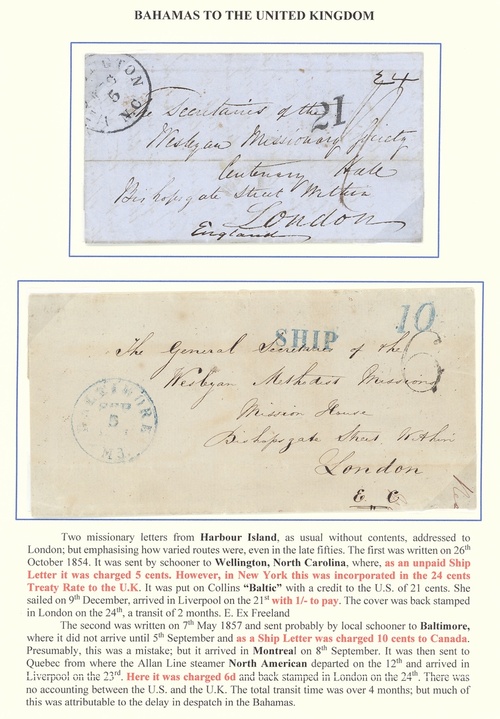 BAHAMAS TO THE UNITED KINGDOM
24
5
NC
21
The Secretaries of the
Wesleyan Missionary Society
Centenary Hall
Bishopsgate Street Within
London
England
10
SHIP
6
The General Secretaries of the
Wesleyan Methodist Missions
Mission House
Bishopsgate Street Within
London
E. C.
BALTIMORE
5
Md.
Two missionary letters from Harbour Island, as usual without contents, addressed to
London; but emphasising how varied routes were, even in the late fifties. The first was written on 26th
October 1854. It was sent by schooner to Wellington, North Carolina, where, as an unpaid Ship
Letter it was charged 5 cents. However, in New York this was incorporated in the 24 cents
Treaty Rate to the U.K. It was put on Collins “Baltic” with a credit to the U.S. of 21 cents. She
sailed on 9th December, arrived in Liverpool on the 21st with 1/- to pay. The cover was back stamped
in London on the 24th, a transit of 2 months. E. Ex Freeland
The second was written on 7th May 1857 and sent probably by local schooner to Baltimore,
where it did not arrive until 5th September and as a Ship Letter was charged 10 cents to Canada.
Presumably, this was a mistake; but it arrived in Montreal on 8th September. It was then sent to
Quebec from where the Allan Line steamer North American departed on the 12th and arrived in
Liverpool on the 23rd. Here it was charged 6d and back stamped in London on the 24th. There was
no accounting between the U.S. and the U.K. The total transit time was over 4 months; but much of
this was attributable to the delay in despatch in the Bahamas.